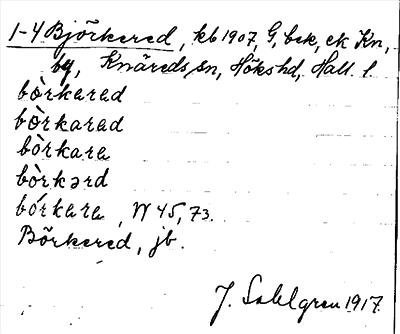 1-4 Björkered, kb 1907, G, bek, ek Kn,
by, Knäreds sn, Hökshd, Hall. l.
bòrkarad
bòrkarad
bòrkara
bòrkərd
bórkara, N 45, 73.
Börkered, jb.
J. Sahlgren 1917.